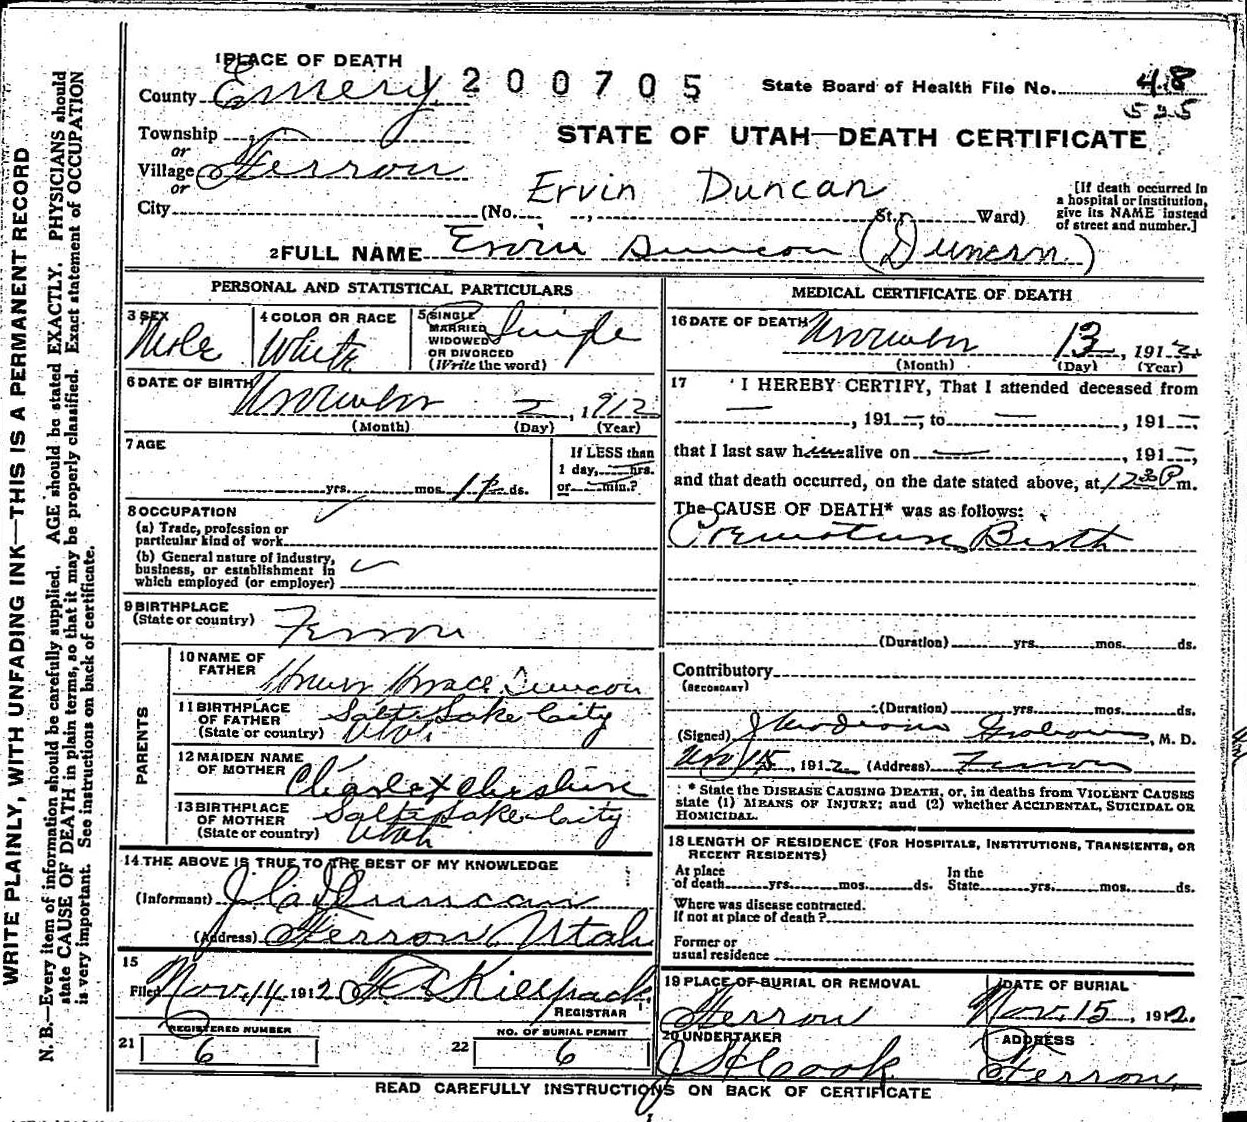 1 PLACE OF DEATH
1200705
State Board of Health File No. 48
525
County Emery
STATE OF UTAH—DEATH CERTIFICATE
Township
or
Village Ferron
or
Ervin Duncan
City (No. , St., Ward)
[If death occurred in a hospital or institution, give its NAME instead of street and number.]
2 FULL NAME Ervin Duncan (Duncan)
PERSONAL AND STATISTICAL PARTICULARS
3 SEX Male
4 COLOR OR RACE White
5 SINGLE MARRIED WIDOWED OR DIVORCED (Write the word) Single
6 DATE OF BIRTH November 2, 1912
(Month) (Day) (Year)
7 AGE
yrs. mos. ds.
If LESS than
1 day, hrs.
or min.?
8 OCCUPATION
(a) Trade, profession or
particular kind of work
(b) General nature of industry,
business, or establishment in
which employed (or employer)
9 BIRTHPLACE
(State or country) Ferron
PARENTS
10 NAME OF
FATHER Horace Duncan
11 BIRTHPLACE
OF FATHER
(State or country) Salt Lake City
Utah
12 MAIDEN NAME
OF MOTHER Cheshire
13 BIRTHPLACE
OF MOTHER
(State or country) Salt Lake City
Utah
14 THE ABOVE IS TRUE TO THE BEST OF MY KNOWLEDGE
(Informant) Duncan
(Address) Ferron, Utah
15
Filed Nov. 14, 1912 Killpack
REGISTRAR
REGISTERED NUMBER
21 6
NO. OF BURIAL PERMIT
22 6
MEDICAL CERTIFICATE OF DEATH
16 DATE OF DEATH November 13, 1912
(Month) (Day) (Year)
17 I HEREBY CERTIFY, That I attended deceased from
— , 191— to — , 191—
that I last saw him alive on — , 191—,
and that death occurred, on the date stated above, at 12 30 P m.
The CAUSE OF DEATH* was as follows:
Premature Birth
(Duration) yrs. mos. ds.
Contributory
(SECONDARY)
(Duration) yrs. mos. ds.
(Signed) , M. D.
Nov 15, 1912 (Address) Ferron
* State the DISEASE CAUSING DEATH, or, in deaths from VIOLENT CAUSES
state (1) MEANS OF INJURY; and (2) whether ACCIDENTAL, SUICIDAL OR
HOMICIDAL.
18 LENGTH OF RESIDENCE (FOR HOSPITALS, INSTITUTIONS, TRANSIENTS, OR
RECENT RESIDENTS)
At place
of death yrs. mos. ds.
In the
State yrs. mos. ds.
Where was disease contracted.
If not at place of death?
Former or
usual residence
19 PLACE OF BURIAL OR REMOVAL
Ferron
DATE OF BURIAL
Nov. 15, 1912.
20 UNDERTAKER
Cook
ADDRESS
Ferron
READ CAREFULLY INSTRUCTIONS ON BACK OF CERTIFICATE
WRITE PLAINLY, WITH UNFADING INK—THIS IS A PERMANENT RECORD
N. B.—Every item of information should be carefully supplied. AGE should be stated EXACTLY. PHYSICIANS should
state CAUSE OF DEATH in plain terms, so that it may be properly classified. Exact statement of OCCUPATION
is very important. See instructions on back of certificate.